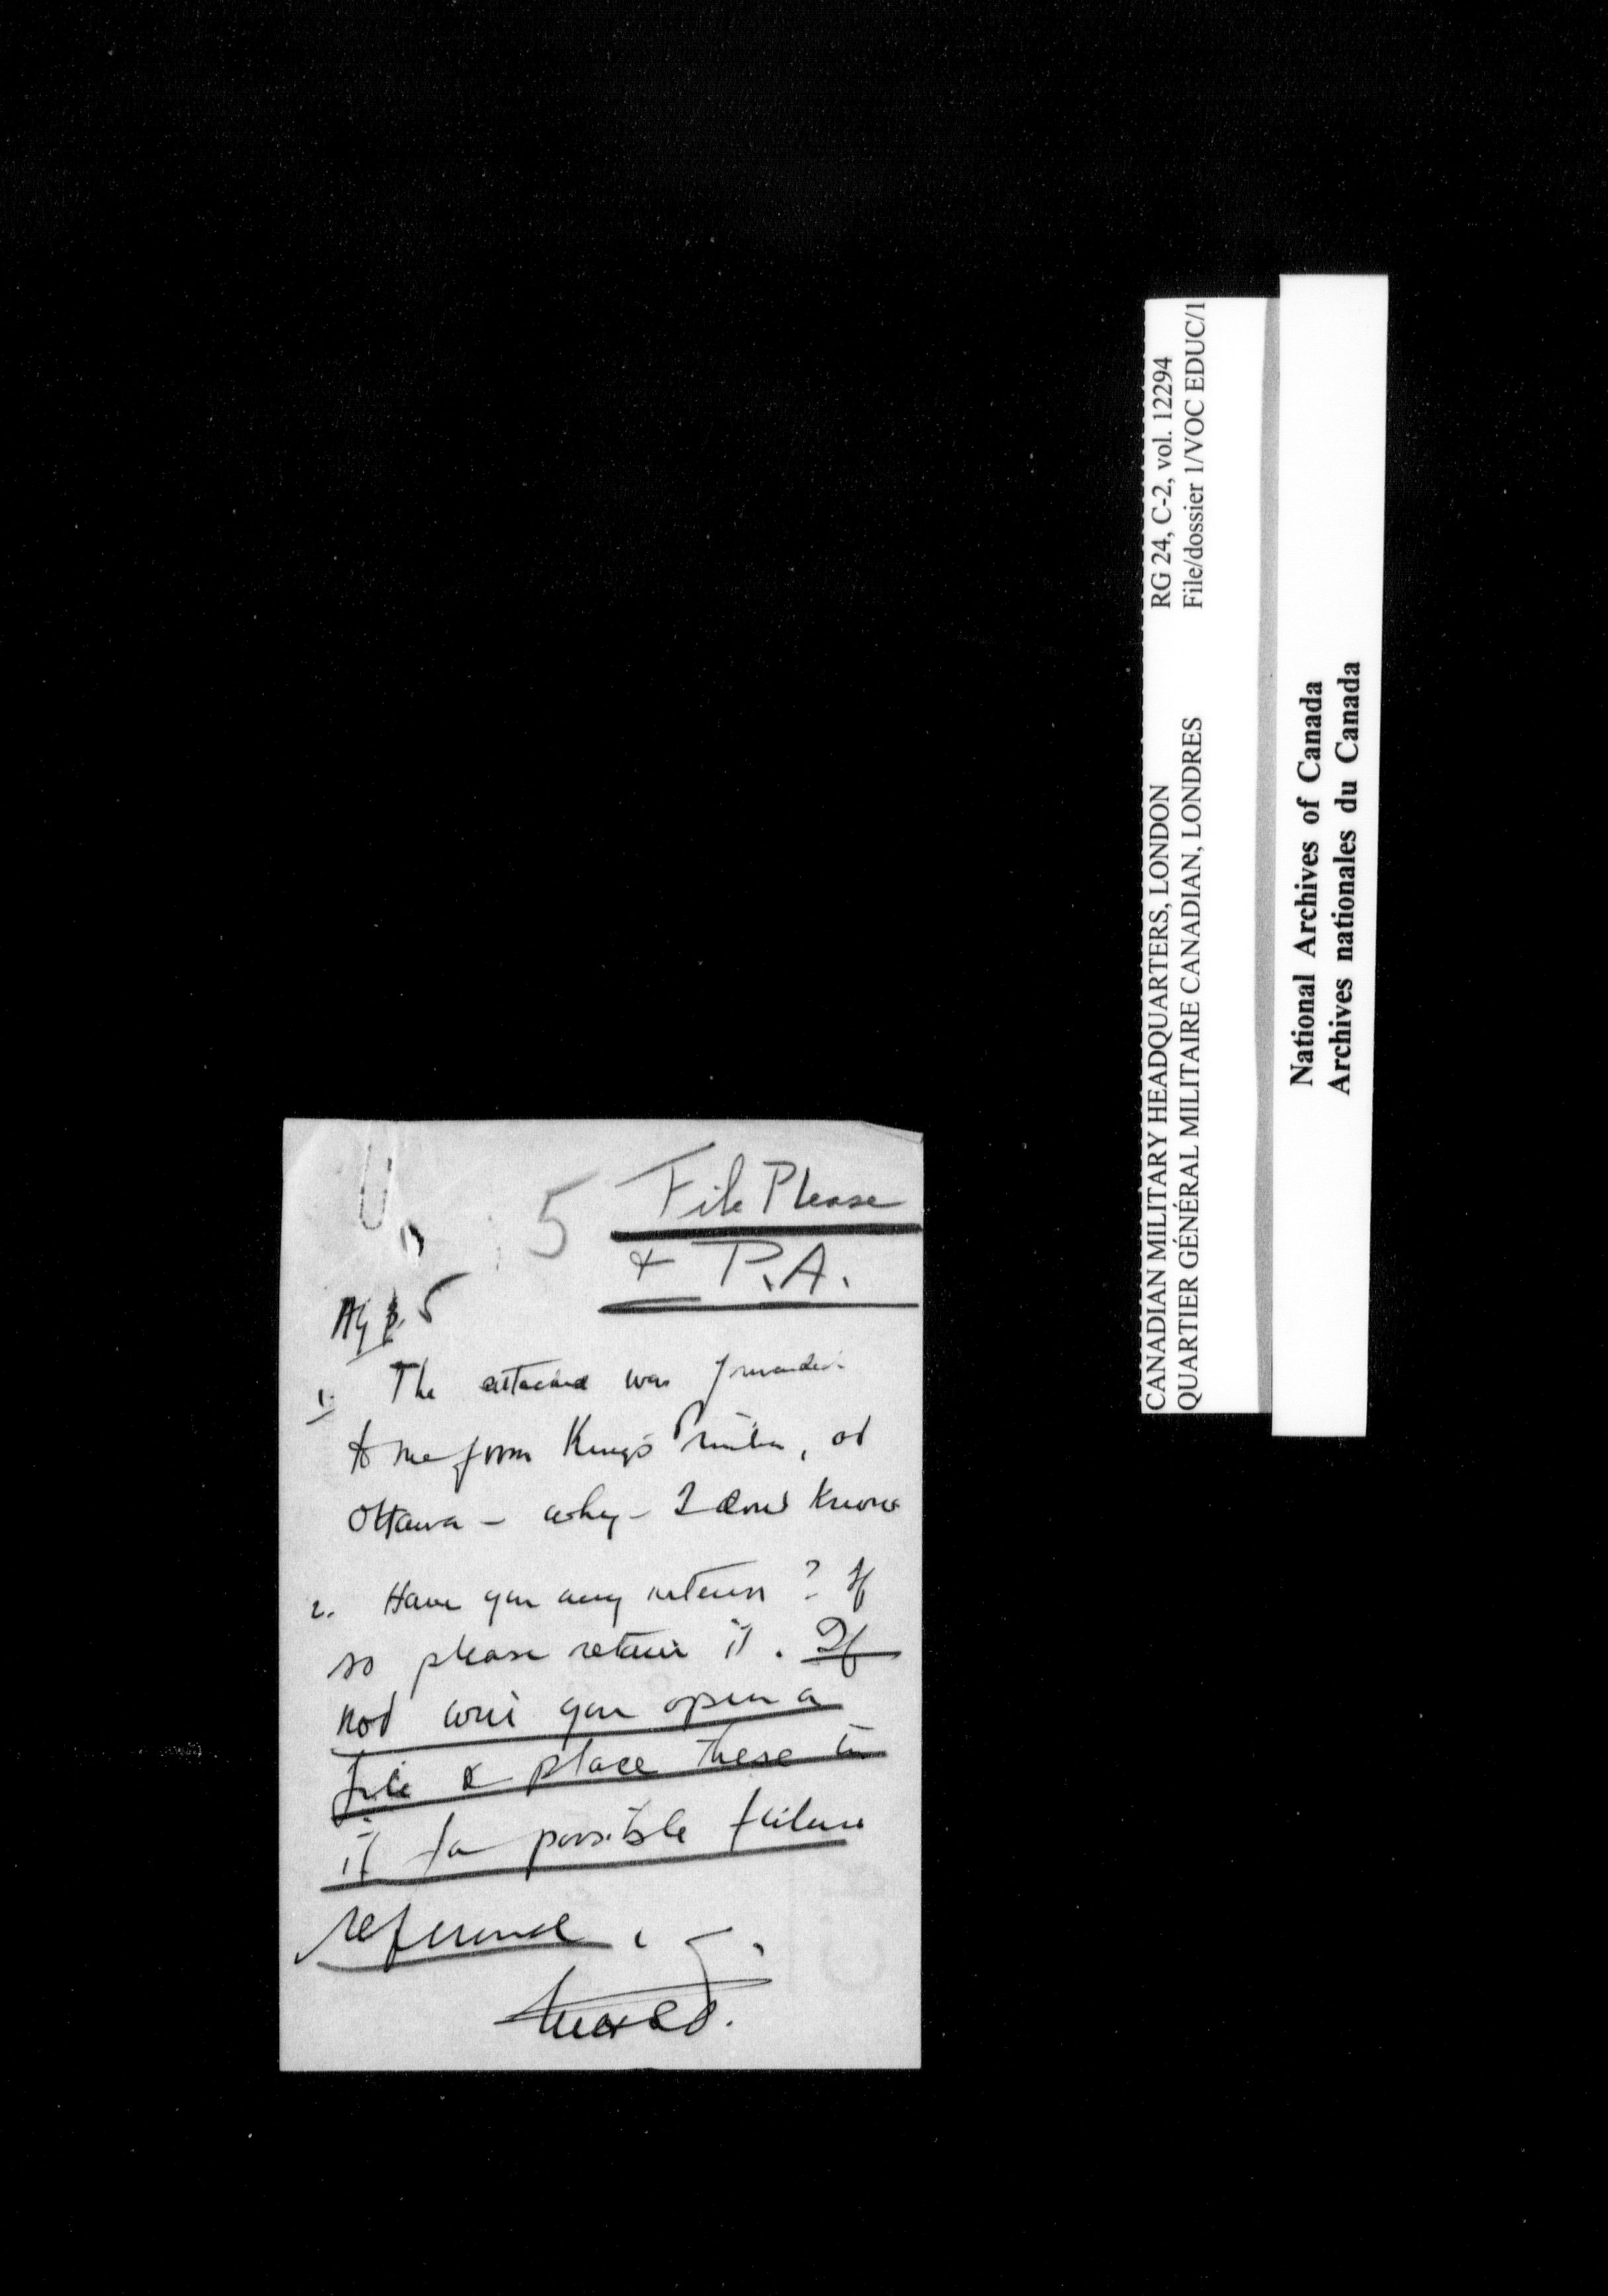 5 File Please
& P.A.
AG 5
1. The attached was forwarded
to me from King's Printer, at
Ottawa - why - I don't know
2. Have you any interest? If
so please retain it. If
not will you open a
file & place these in
it for possible future
reference.
RG 24, C-2, vol. 12294
File/dossier 1/VOC EDUC/1
CANADIAN MILITARY HEADQUARTERS, LONDON
QUARTIER GÉNÉRAL MILITAIRE CANADIAN, LONDRES
National Archives of Canada
Archives nationales du Canada